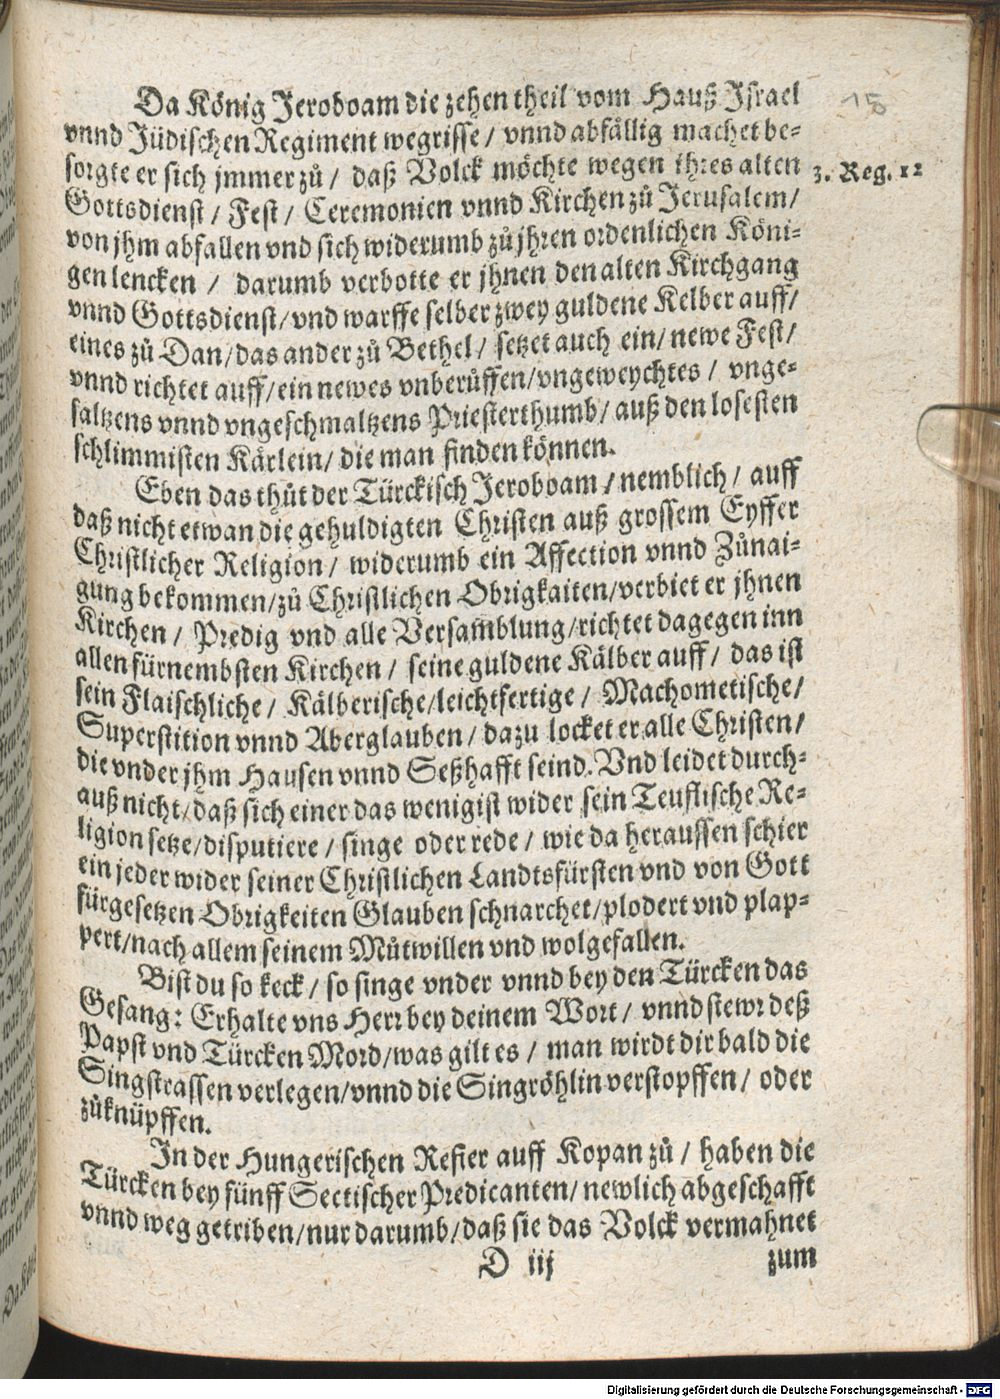 15
Da König Jeroboam die zehen theil vom Hauß Israel
vnnd Jüdischen Regiment wegrisse / vnnd abfällig machet be-
sorgte er sich jmmerzů / daß Volck möchte wegen ihres alten
3. Reg. 12
Gottsdienst / Fest / Ceremonien vnnd Kirchen zů Jerusalem /
von jhm abfallen vnd sich widerumb zů jhren ordenlichen Köni-
gen lencken / darumb verbotte er jhnen den alten Kirchgang
vnnd Gottsdienst / vnd warffe selber zwey guldene Kelber auff /
eines zů Dan / das ander zů Bethel / setzet auch ein / newe Fest /
vnnd richtet auff / ein newes vnberůffen / vngeweychtes / vnge-
saltzens vnnd vngeschmaltzens Priesterthumb / auß den losesten
schlimmisten Kärlein / die man finden können.
Eben das thůt der Türckisch Jeroboam / nemblich / auff
daß nicht etwan die gehuldigten Christen auß grossem Eyffer
Christlicher Religion / widerumb ein Affection vnnd Zůnai-
gung bekommen / zů Christlichen Obrigkaiten / verbiet er jhnen
Kirchen / Predig vnd alle Versam̃blung / richtet dagegen inn
allen fürnembsten Kirchen / seine guldene Kälber auff / das ist
sein Flaischliche / Kälberische / leichtfertige / Machometische /
Superstition vnnd Aberglauben / dazu locket er alle Christen /
die vnder jhm Hausen vnnd Seßhafft seind. Vnd leidet durch-
auß nicht / daß sich einer das wenigist wider sein Teuflische Re-
ligion setze / disputiere / singe oder rede / wie da heraussen schier
ein jeder wider seiner Christlichen Landtsfürsten vnd von Gott
fürgesetzen Obrigkeiten Glauben schnarchet / plodert vnd plap-
pert / nach allem seinem Můtwillen vnd wolgefallen.
Bist du so keck / so singe vnder vnnd bey den Türcken das
Gesang: Erhalte vns Herr bey deinem Wort / vnnd stewr deß
Papst vnd Türcken Mord / was gilt es / man wirdt dir bald die
Singstrassen verlegen / vnnd die Singröhlin verstopffen / oder
zůknüpffen.
In der Hungerischen Refier auff Kopan zů / haben die
Türcken bey fünff Sectischer Predicanten / newlich abgeschafft
vnnd weg getriben / nur darumb / daß sie das Volck vermahnet
D iij
zum
Digitalisierung gefördert durch die Deutsche Forschungsgemeinschaft - DFG